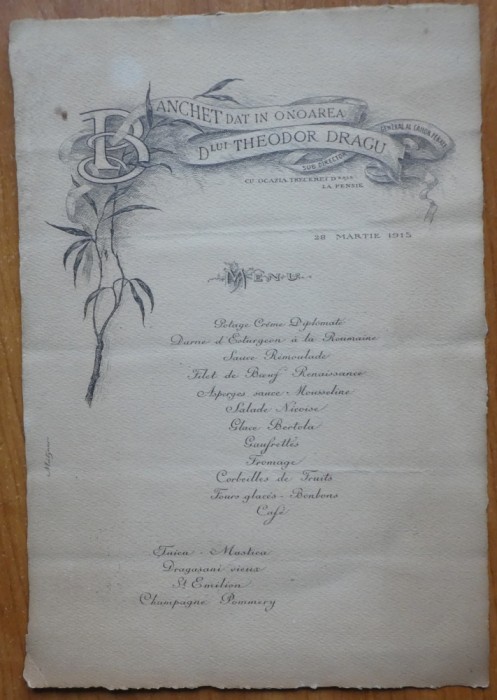 BANCHET DAT IN ONOAREA
DLUI THEODOR DRAGU
SUB DIRECTOR
GENERAL AL CAILOR FERATE
CU OCAZIA TRECEREI D-SALE
LA PENSIE
28 MARTIE 1915
MENU
Potage Crême Diplomate
Darne d'Esturgeon à la Roumaine
Sauce Remoulade
Filet de Bœuf Renaissance
Asperges sauce - Mousseline
Salade Niçoise
Glace Bertola
Gaufrettes
Fromage
Corbeilles de Fruits
Fours glacés - Bonbons
Café
Tuica - Mastica
Dragasani vieux
St Emilion
Champagne Pommery